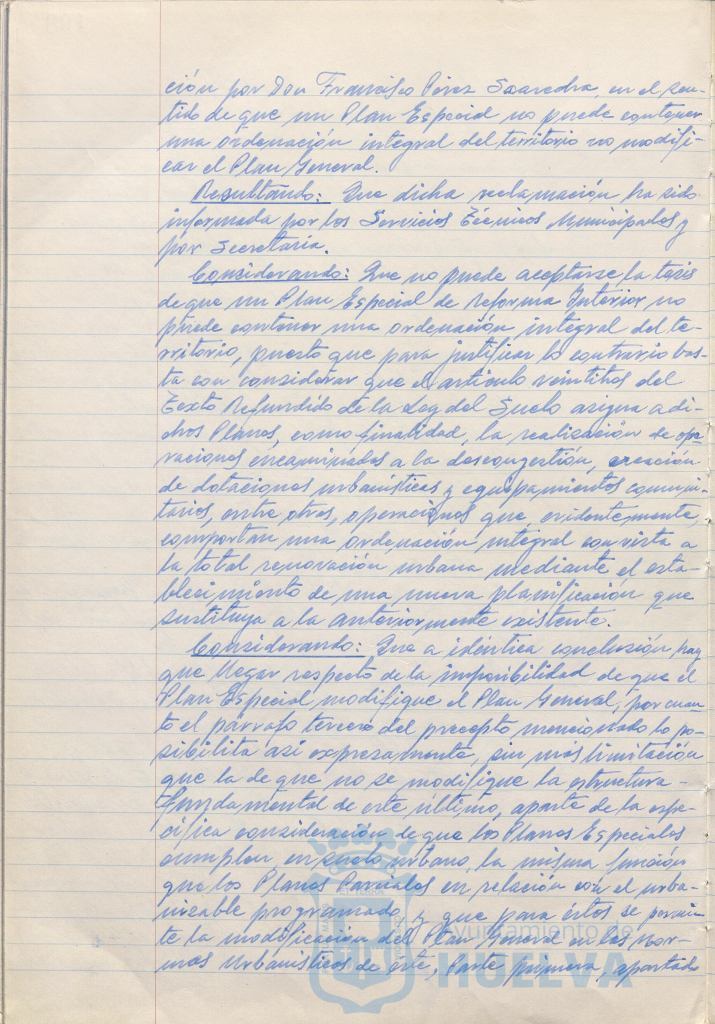 ción por Don Francisco Pérez Saavedra, en el sen-
tido de que un Plan Especial no puede contener
una ordenación integral del territorio no modifi-
car el Plan General.
Resultando: Que dicha reclamación ha sido
informada por los Servicios Técnicos Municipales y
por Secretaría.
Considerando: Que no puede aceptarse la tesis
de que un Plan Especial de Reforma Interior no
puede contener una ordenación integral del te-
rritorio, puesto que para justificar lo contrario bas-
ta con considerar que el artículo veintitrés del
Texto Refundido de la Ley del Suelo asigna a di-
chos Planes, como finalidad, la realización de ope-
raciones encaminadas a la descongestión, creación
de dotaciones urbanísticas y equipamientos comuni-
tarios, entre otras, operaciones que, evidentemente,
comportan una ordenación integral con vista a
la total renovación urbana mediante el esta-
blecimiento de una nueva planificación que
sustituya a la anteriormente existente.
Considerando: Que a idéntica conclusión hay
que llegar respecto de la imposibilidad de que el
Plan Especial modifique el Plan General, por cuan-
to el párrafo tercero del precepto mencionado lo po-
sibilita así expresamente, sin más limitación
que la de que no se modifique la estructura
fundamental de este último, aparte de la espe-
cífica consideración de que los Planes Especiales
cumplen en suelo urbano, la misma función
que los Planes Parciales en relación con el urba-
nizable programado, y que para éstos se permi-
te la modificación del Plan General en las Nor-
mas Urbanísticas de éste, Parte primera, apartado
Ayuntamiento de
HUELVA